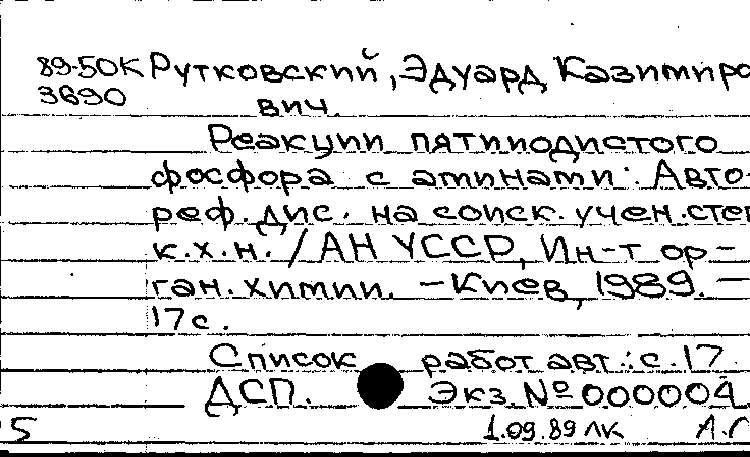 89-50К Рутковский, Эдуард Казимиро
3690 вич.
Реакции пятииодистого
фосфора с аминами: Авто-
реф. дис. на соиск. учен. степ
к.х.н. / АН УССР, Ин-т ор-
ган. химии. - Киев, 1989. -
17 с.
Список работ авт.: с. 17
ДСП. Экз. № 000004
5 1.09.89 ЛК